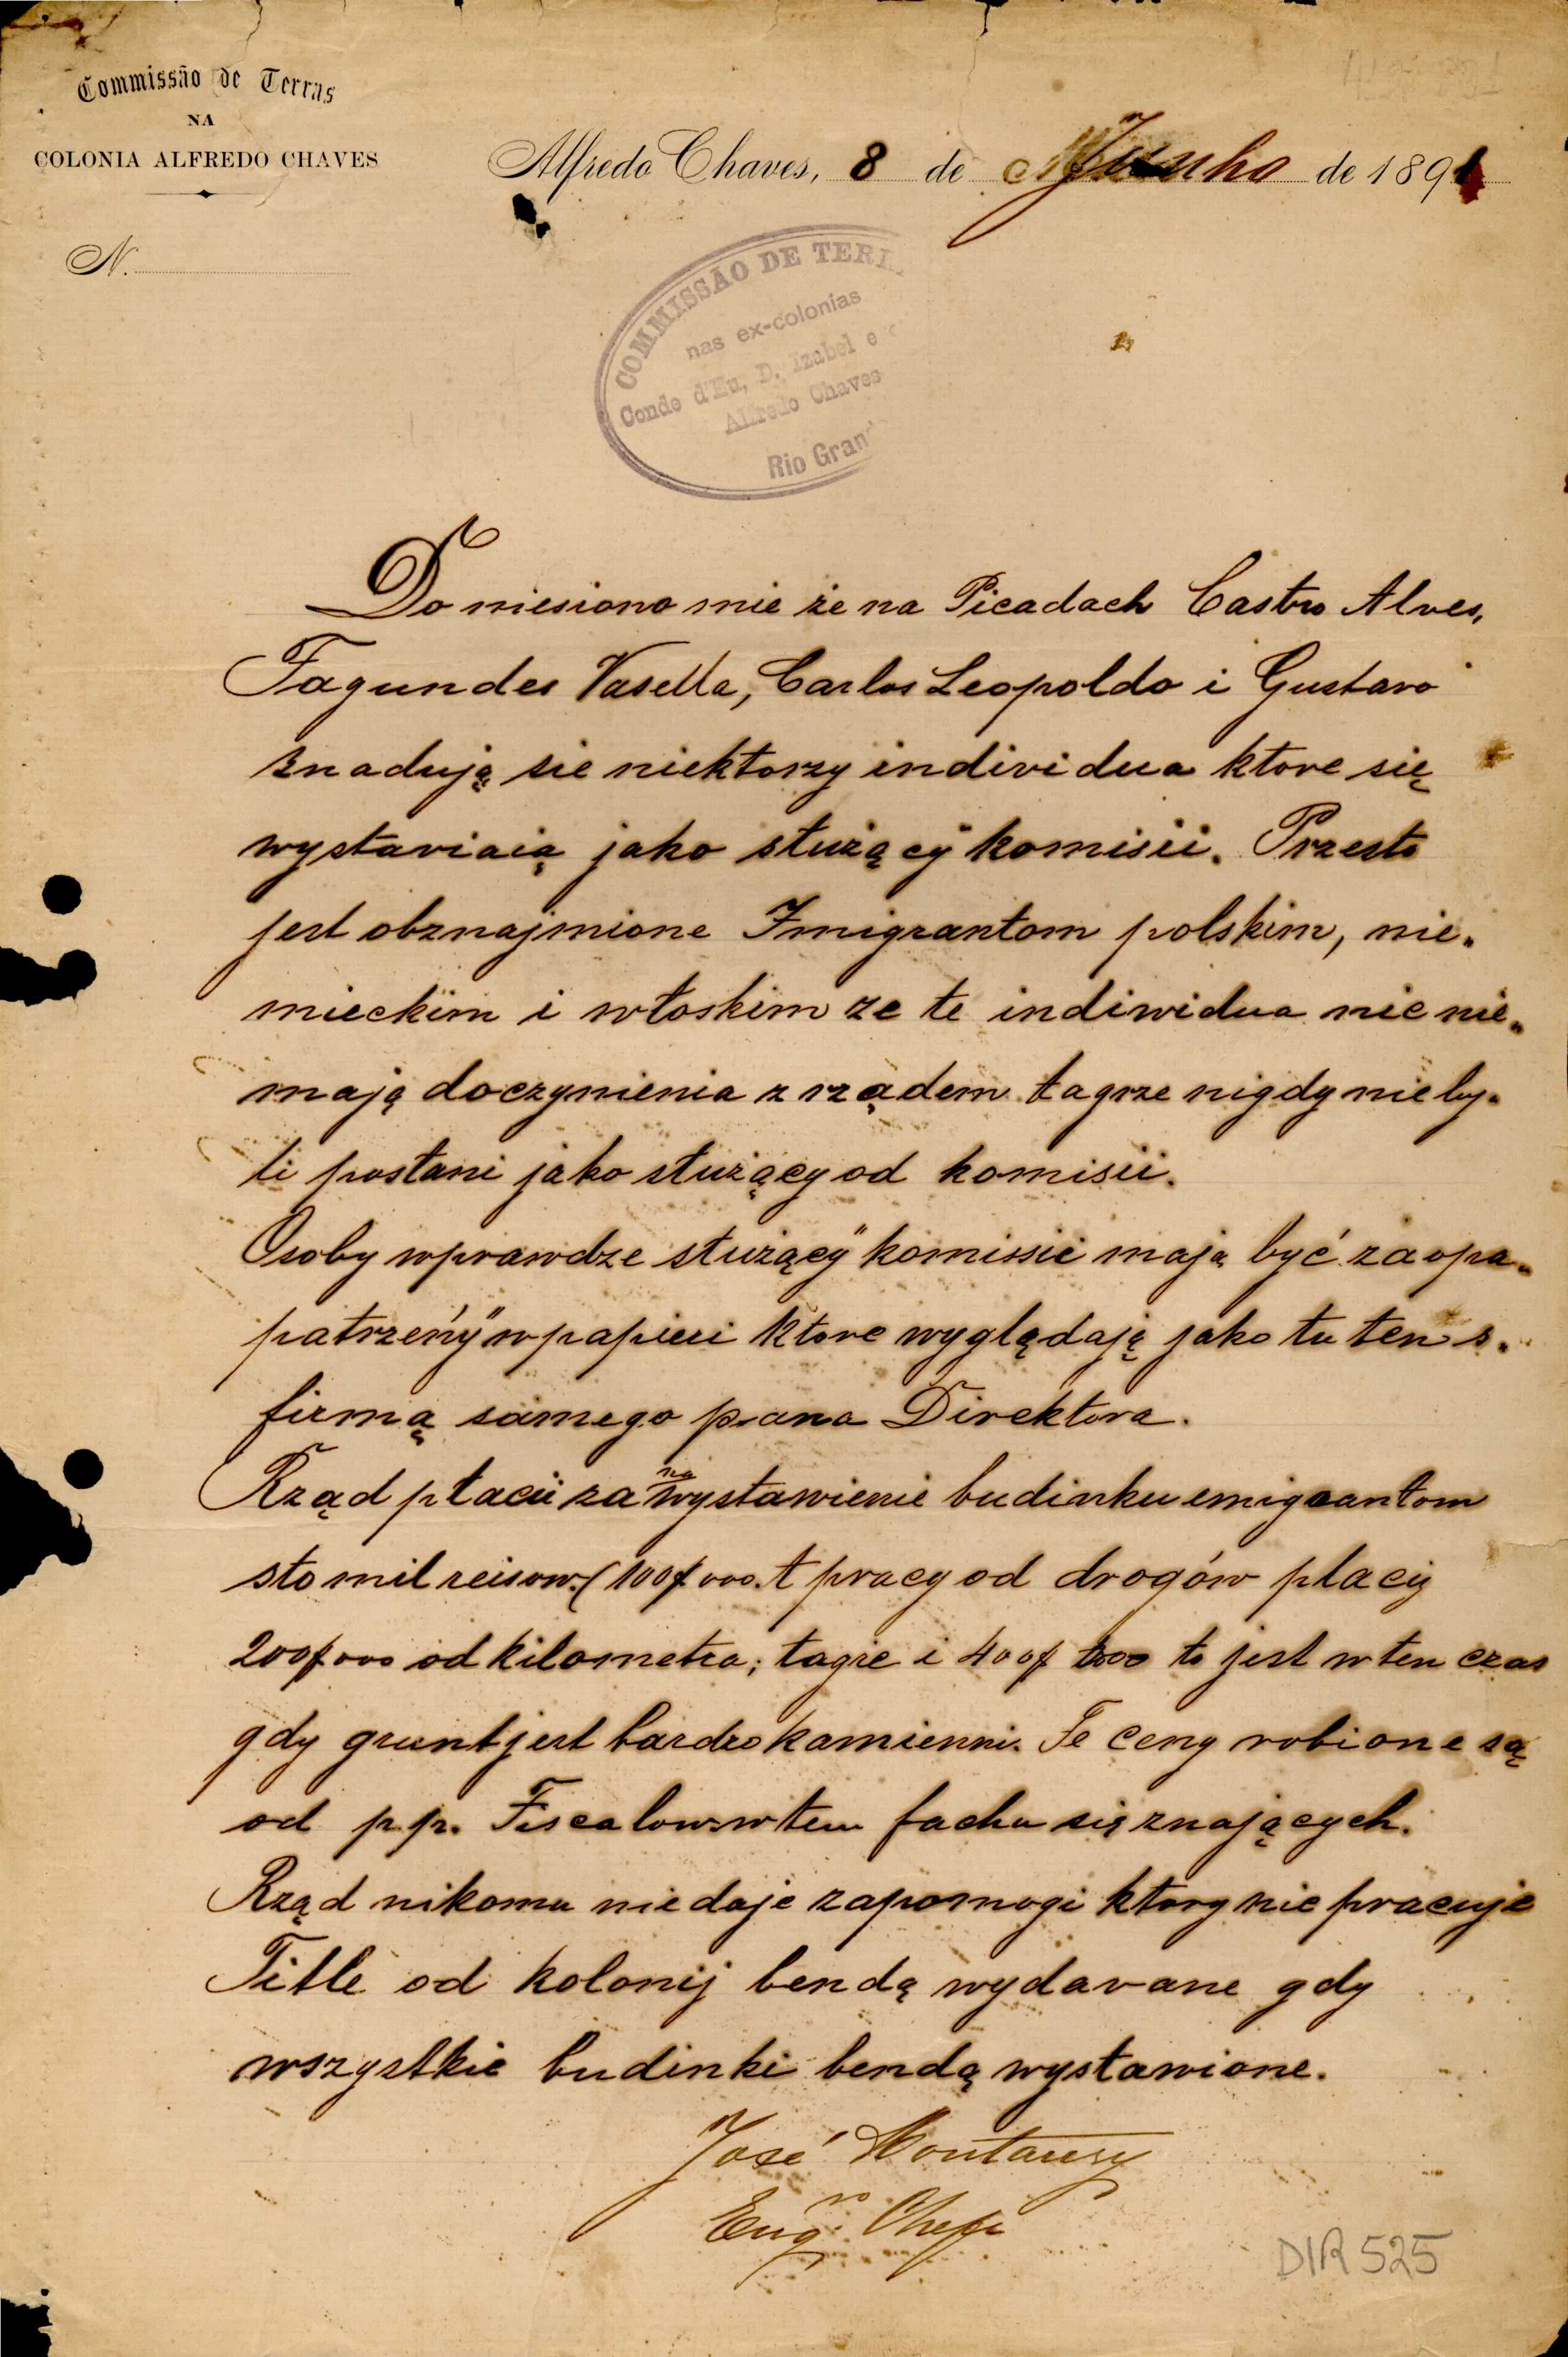 Commissão de Terras
NA
COLONIA ALFREDO CHAVES
Alfredo Chaves, 8 de Junho de 1891
N.
COMMISSÃO DE TERR
nas ex-colonias
Conde d'Eu, D. Izabel e
Alfredo Chaves
Rio Gran
Do niesiono mie że na Picadach Castro Alves,
Fagundes Vasella, Carlos Leopoldo i Gustavo
znadują sie niektorzy individua ktore się
wystaviaią jako służący komisii. Przesto
jest obznajmione Imigrantom polskim, nie-
mieckim i włoskim ze te indiwidua nic nie-
mają doczynienia z rządem tagrze nigdy nieby-
li posłani jako służący od komisii.
Osoby wprawdze służący komissii mają być zaopa-
patrzeńy w papieri ktore wyglądają jako tu ten s.
firmą samego pana Direktora.
Rząd płacii za na wystawienie budinku emigrantom
sto mil reisow (100$000. t pracy od drogów placiż
200$000 od kilometra; tagże i 400$000 to jest w ten czas
gdy grunt jest bardzo kamienni. Te ceny robione są
od p.p. Fiscalow w tem fachu się znających.
Rząd nikomu niedaje zapomogi ktory nie pracuje
Title od kolonij bendą wydavane gdy
wszystkie budinki bendą wystawione.
José Montaury
Engro. Chefe
DIR 525